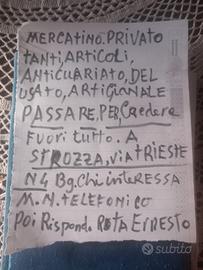 MERCATINO. PRIVATO
TANTI, ARTICOLI,
ANTICUARIATO, DEL
USATO, ARTIGIANALE
PASSARE, PER, Caedere
FUORI TUTTO. A
STROZZA, VIA TRIESTE
N4 Bg. Chi iNTERESSA
M. N. TELEFONICO
Poi Rispond. ROTA ERNESTO
subito